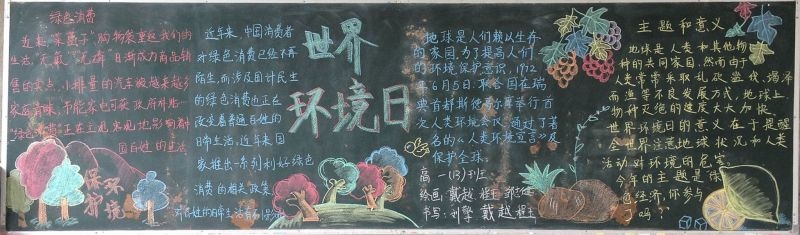 绿色消费
近来,"菜篮子"购物袋重返我们的
生活,"天取""无磷"日渐成为商品销
售的卖点,小排量的汽车被越来越多
家庭青睐,节能家电可获政府补贴…
"绿色消费"正在主观客观地影响着
国百姓的生活
环保
环境
近年来,中国消费者
对绿色消费已经不再
陌生,而涉及国计民生
的绿色消费也正在
改变着普通百姓的
日常生活,近年来国
家推出一系列利好绿色
消费的相关政策,
世界
环境日
地球是人们赖以生存
的家园,为了提高人们
的环境保护意识,1972
年6月5日,联合国在瑞
典首都斯德哥尔摩举行首
次人类环境会议,通过了著
名的《人类环境宣言》及
保护全球
高一(13)刊班
绘画:戴越 程王 邹红
书写:刘擎 戴越 程王
主题和意义
地球是人类和其他物
种的共同家园,然而由于
人类常常采取乱砍盗伐、竭泽
而渔等不良发展方式,地球上
物种灭绝的速度大大加快。
世界环境日的意义在于提醒
全世界注意地球状况和人类
活动对环境的危害。
今年的主题是绿
色经济,你参与
了吗?